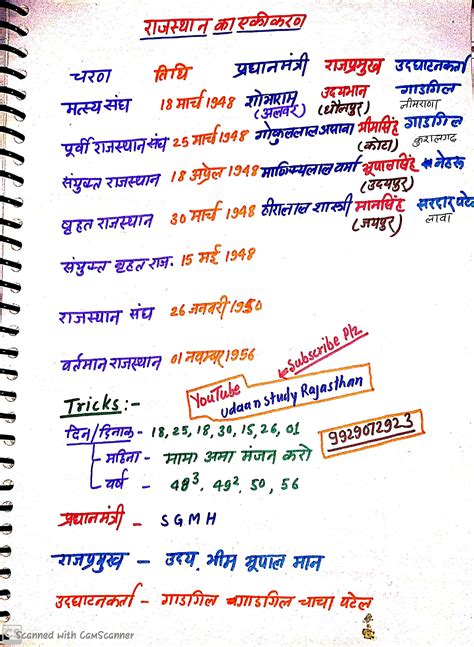 राजस्थान का एकीकरण
चरण तिथि प्रधानमंत्री राजप्रमुख उदघाटनकर्ता
मत्स्य संघ 18 मार्च 1948 शोभाराम उदयभान गाडगिल
(अलवर) (धौलपुर) नीमराणा
पूर्वी राजस्थान संघ 25 मार्च 1948 गोकुललाल असावा भीमसिंह गाडगिल
(कोटा)
संयुक्त राजस्थान 18 अप्रेल 1948 माणिक्यलाल वर्मा भूपालसिंह नेहरू
(उदयपुर)
वृहत राजस्थान 30 मार्च 1948 हीरालाल शास्त्री मानसिंह सरदार पटेल
(जयपुर) लावा
संयुक्त वृहत राज. 15 मई 1948
राजस्थान संघ 26 जनवरी 1950
वर्तमान राजस्थान 01 नवम्बर 1956
Subscribe Plz
YouTube
udaan study Rajasthan
Tricks :-
दिन/दिनाक - 18, 25, 18, 30, 15, 26, 01
9929072923
महिना - मामा अमा मंजन करो
वर्ष - 48³, 49², 50, 56
प्रधानमंत्री - SGMH
राजप्रमुख - उदय भीम भूपाल मान
उदघाटनकर्ता - गाडगिल वगाडगिल चाचा पटेल
Scanned with CamScanner